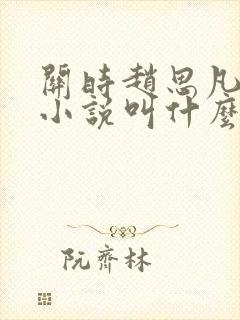 關時趙思凡
小說叫什麼
阮齊林